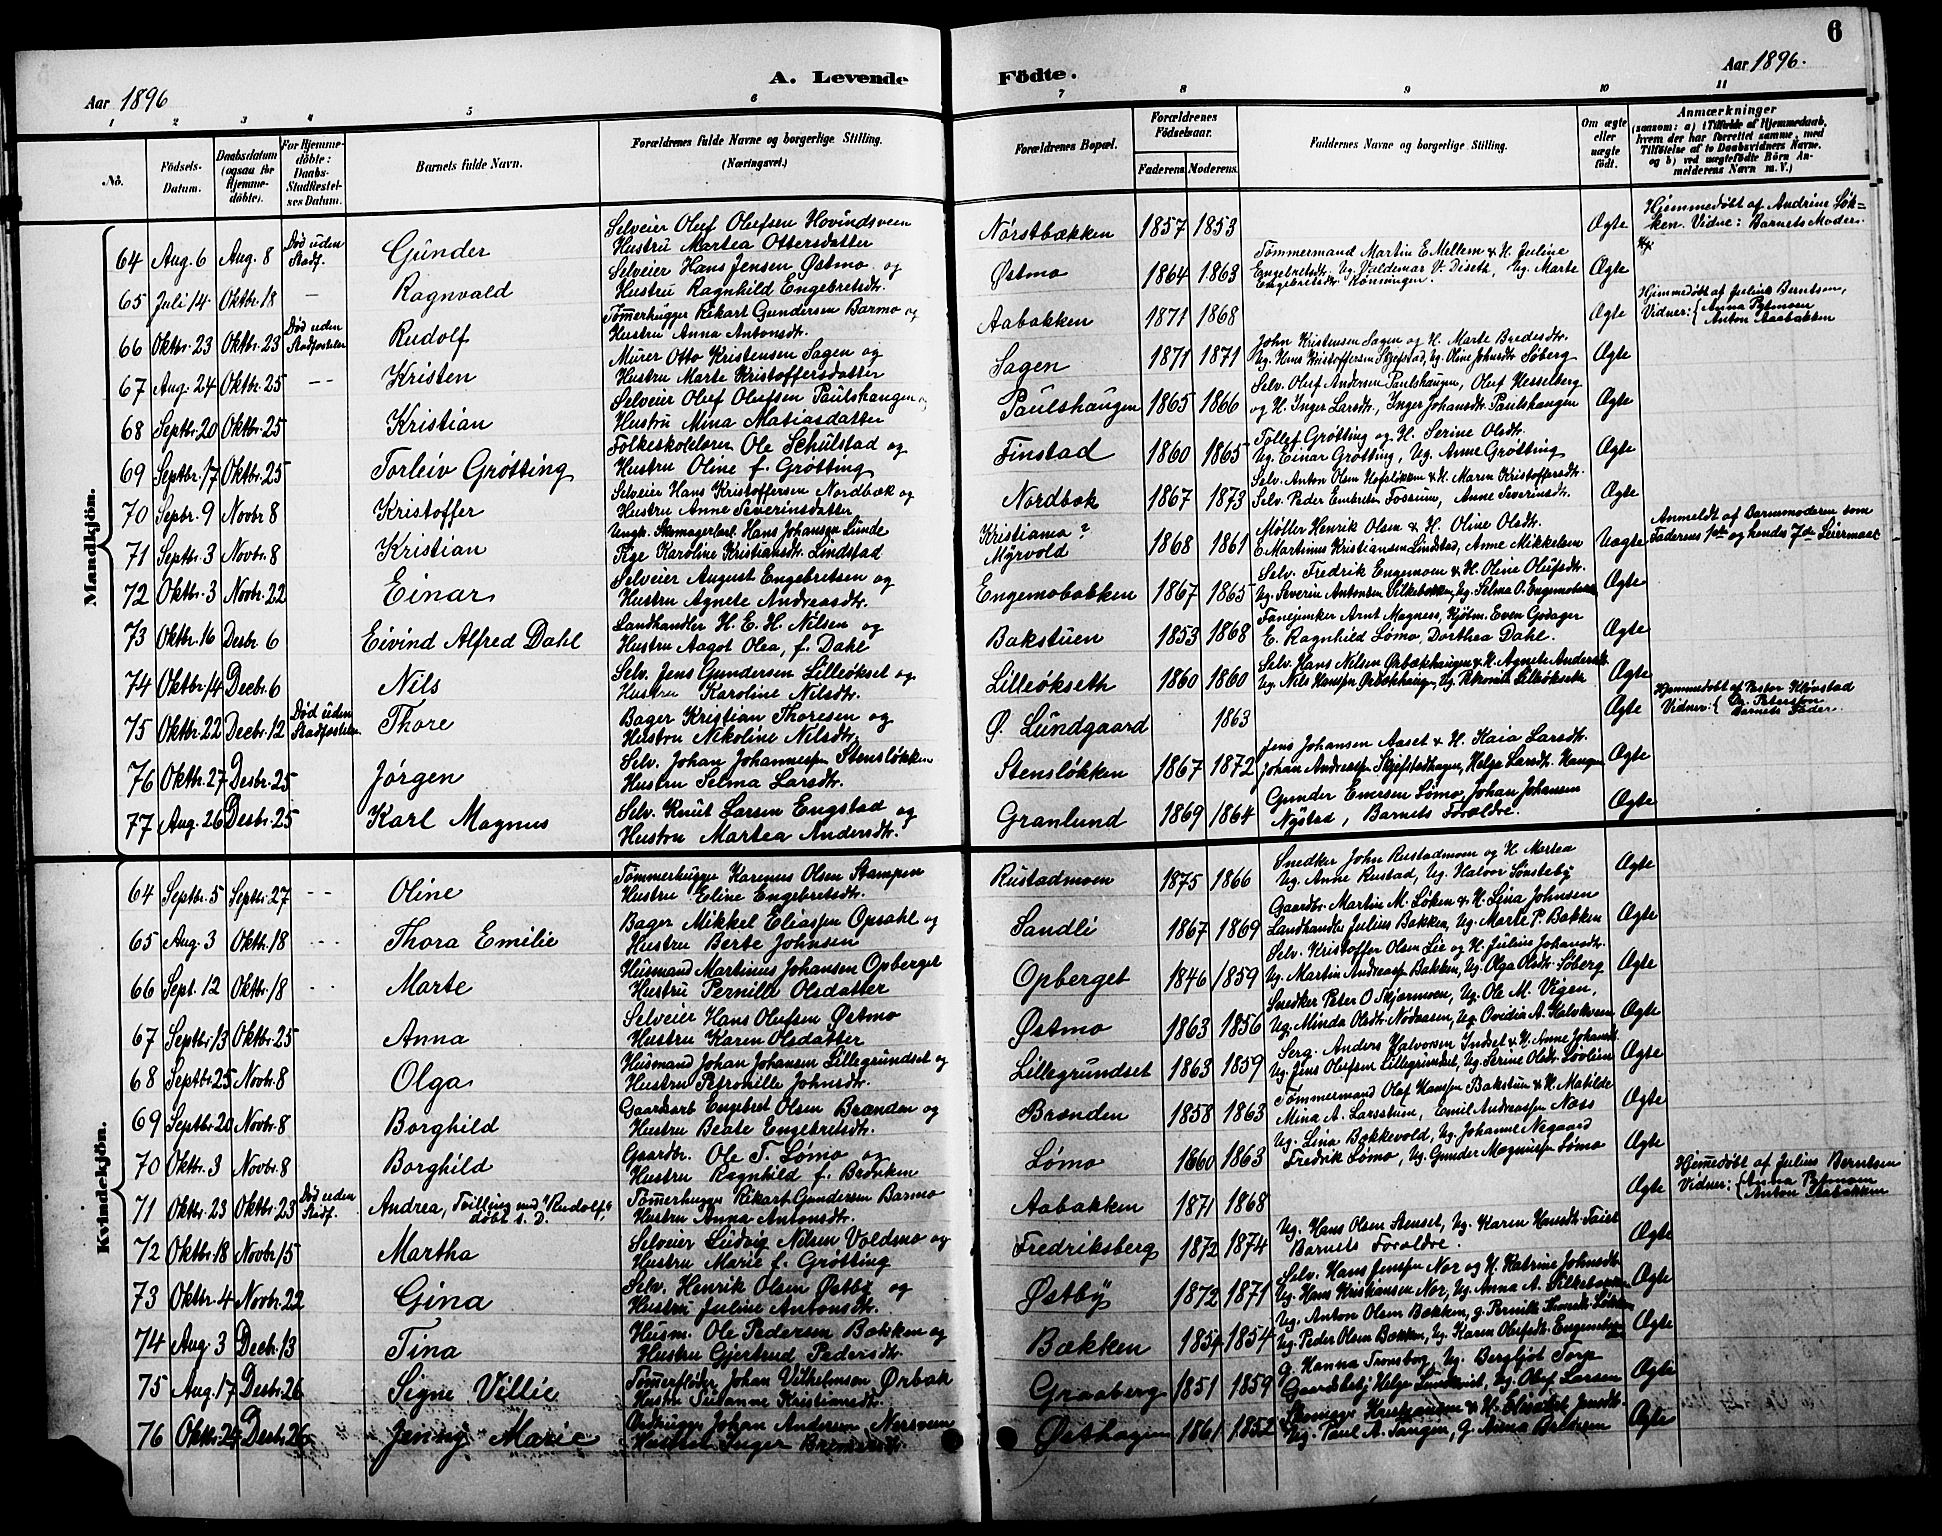 6
A. Levende Födte.
Aar 1896
Aar 1896.
1 2 3 4 5 6 7 8 9 10 11
No.
Födsels-Datum.
Daabsdatum (ogsaa for Hjemmedöbte).
For Hjemmedöbte: Daabs-Stadfæstelses Datum.
Barnets fulde Navn.
Forældrenes fulde Navne og borgerlige Stilling.
(Næringsvei.)
Forældrenes Bopæl.
Forældrenes Födselsaar.
Faderens Moderens.
Faddernes Navne og borgerlige Stilling.
Om ægte eller uægte födt.
Anmærkninger
(saasom: a) i Tilfælde af Hjemmedaab,
hvem der har forrettet samme, med
Tilföielse af to Daabsvidners Navne.
og b) ved uægtefödte Börn An-
melderens Navn m. V.)
Mandkjön.
64 Aug. 6 Aug. 8 Död uden Stadf. Gunder
Selveier Oluf Olufsen Hovindsveen
Hustru Martea Ottersdatter
Nørstbækken 1857 1853 Ægte
Hjemmedøbt af Andrine Løk-
ken. Vidne: Barnets Moder.
65 Juli 14 Oktbr. 18 – Ragnvald
Selveier Hans Jensen Østmo og
Hustru Ragnhild Engebretsdtr.
Østmo 1864 1863
Tømmermand Martin E. Mellem & H. Juline
Engebretsdtr. Ug. Valdemar V. Diseth, Ug. Marte
Engebretsdtr. Ægte
66 Oktbr. 23 Oktbr. 23 Död uden Stadfæstelse Rudolf
Tømerhugger Rikart Gundersen Barmo og
Hustru Anna Antonsdtr.
Aabakken 1871 1868 Ægte
Hjemmedøbt af Julius Berntsen,
Vidner: Anna
Anton Aabakken
67 Aug. 24 Oktbr. 25 – – Kristen
Murer Otto Kristensen Sagen og
Hustru Marte Kristoffersdatter
Sagen 1871 1871
John Kristensen Sagen og H. Marte Bredesdtr.
Ug. Hans Kristoffersen Skjefstad, Ug. Oline Johnsdtr. Søberg Ægte
68 Septbr. 20 Oktbr. 25 Kristian
Selveier Oluf Olufsen Paulshaugen og
Hustru Mina Matiasdatter
Paulshaugen 1865 1866
Selv. Oluf Andersen Paulshaugen, Oluf Hesselberg
og H. Inger Larsdtr., Inger Johansdtr. Paulshaugen Ægte
69 Septbr. 17 Oktbr. 25 Torleiv Grøtting
Folkeskolelærer Ole Schulstad og
Hustru Oline f. Grøtting
Finstad 1860 1865
Tollef Grøtting og H. Serine Olsdtr.
Ug. Einar Grøtting, Ug. Anne Grøtting Ægte
70 Septbr. 9 Novbr. 8 Kristoffer
Selveier Hans Kristoffersen Nordbæk og
Hustru Anne Severinsdatter
Nordbæk 1867 1873
Selv. Anton Olsen Hofsløkken & H. Maren Kristoffersdtr.
Selv. Peder Embretsen Fossum, Anne Severinsdtr. Ægte
71 Septbr. 3 Novbr. 8 Kristian
Ungk. Skomagerlærl. Hans Johansen Lunde
Pige Karoline Kristiansdtr. Lindstad
Kristiania?
Myrvold 1868 1861
Møller Henrik Olsen & H. Oline Olsdtr.
E. Martinus Kristiansen Lindstad, Anne Mikkelsen Uægte
Anmeldt af Barnmoderen som
Faderens 1ste og hendes 7de Leiermaal
72 Oktbr. 3 Novbr. 22 Einar
Selveier August Engebretsen og
Hustru Agnete Andreasdtr.
Engemobakken 1867 1865
Selv. Fredrik Engemoen & H. Oline Olufsdtr.
Ug. Severin Antonsen Silkebækken, Ug. Selma O. Engemobakken Ægte
73 Oktbr. 16 Desbr. 6 Eivind Alfred Dahl
Landhandler H. E. H. Nilsen og
Hustru Aagot Olea, f. Dahl
Bakstuen 1853 1868
Fanejunker Arnt Magness, Kjøbm. Even Godager
E. Ragnhild Lømo, Dorthea Dahl. Ægte
74 Oktbr. 14 Decbr. 6 Nils
Selv. Jens Gundersen Lilleøkset og
Hustru Karoline Nilsdtr.
Lilleøkseth 1860 1860
Selv. Hans Nilsen Ørbækhaugen & H. Agnete Andersdtr.
Ug. Nils Hansen Ørbækhaugen, Ug. Petronille Lilleøkseth Ægte
75 Oktbr. 22 Decbr. 12 Död uden Stadfæstelse Thore
Bager Kristian Thoresen og
Hustru Nikoline Nilsdtr.
Ø. Lundgaard 1863 Ægte
Hjemmedøbt af Pastor Kløvstad
Vidner: Petersen
Barnets Fader.
76 Oktbr. 27 Desbr. 25 Jørgen
Selv. Johan Johannessen Stensløkken
Hustru Selma Larsdtr.
Stensløkken 1867 1872
Jens Johansen Aaset & H. Kaia Larsdtr.
Johan Andreassen Skjefstadhagen, Helga Larsdtr. Haugen Ægte
77 Aug. 26 Desbr. 25 Karl Magnus
Selv. Knut Larsen Engstad og
Hustru Martea Andersdtr.
Granlund 1869 1864
Gunder Evensen Lømo, Johan Johansen
Nystad, Barnets Forældre. Ægte
Kvindekjön.
64 Septbr. 5 Septbr. 27 – – Oline
Tømmerhugger Karenus Olsen Stampen
Hustru Eline Engebretsdtr.
Rustadmoen 1875 1866
Snedker John Rustadmoen og H. Martea
Ug. Anne Rustad, Ug. Halvor Sønsteby Ægte
65 Aug. 3 Oktbr. 18 Thora Emilie
Bager Mikkel Eliassen Opsahl og
Hustru Berte Johnsen
Sandli 1867 1869
Gaardbr. Martin M. Løken & H. Lina Johnsen
Landhandler Julius Bakken, Ug. Marte P. Bakken Ægte
66 Sept. 12 Oktbr. 18 Marte
Husmand Martinus Johansen Opberget
Hustru Pernille Olsdatter
Opberget 1846 1859
Selv. Kristoffer Olsen Lie og H. Juline Johansdtr.
Ug. Martin Andreassen Bakken, Ug. Olga Olsdtr. Søberg Ægte
67 Septbr. 13 Oktbr. 25 Anna
Selveier Hans Olufsen Østmo
Hustru Karen Olsdatter
Østmo 1863 1856
Snedker Peter O. Skjærmoen, Ug. Ole M. Vigen,
Ug. Minda Olsdtr. Nordaasen, Ug. Ovidia A. Halvkveen Ægte
68 Septbr. 25 Novbr. 8 Olga
Husmand Johan Johansen Lillegrundset og
Hustru Petronille Johnsdtr.
Lillegrundset 1863 1859
Serg. Anders Halvorsen Indset & H. Anne Johansdtr.
Ug. Jens Olufsen Lillegrundset, Ug. Serine Olsdtr. Lovlien Ægte
69 Septbr. 20 Novbr. 8 Borghild
Gaardarb. Engebret Olsen Brænden og
Hustru Beate Engebretsdtr.
Brænden 1858 1863
Tømmermand Olaf Hansen Bakstuen & H. Matilde
Mina A. Larsstuen, Emil Andreassen Næss Ægte
70 Oktbr. 3 Novbr. 8 Borghild
Gaardbr. Ole T. Lømo og
Hustru Ragnhild f. Bronken
Lømo 1860 1863
Ug. Lina Bakkevold, Ug. Johanne Negaard
Fredrik Lømo, Ug. Gunder Magnussen Lømo Ægte
71 Oktbr. 23 Oktbr. 23 Död uden Stadf. Andrea, Tvilling med "Rudolf"
døbt s. D.
Tømerhugger Rikart Gundersen Barmo
Hustru Anna Antonsdtr.
Aabakken 1871 1868 Ægte
Hjemedøbt af Julius Berntsen
Vidner: Anna
Anton Aabakken
72 Oktbr. 18 Novbr. 15 Martha
Selveier Ludvig Nilsen Voldmo og
Hustru Marie f. Grøtting
Fredriksberg 1872 1874
Ug. Hans Olsen Stenset, Ug. Karen Hansdtr. Taiet
Barnets Forældre. Ægte
73 Oktbr. 4 Novbr. 22 Gina
Selv. Henrik Olsen Østby og
Hustru Juline Antonsdtr.
Østby 1872 1871
Selv. Hans Jensen Nor og H. Katrine Johnsdtr.
Ug. Hans Kristiansen Nor, Ug. Anna A. Silkebækken Ægte
74 Aug. 3 Decbr. 13 Tina
Husm. Ole Pedersen Bakken og
Hustru Gjertrud Pedersdtr.
Bækken 1854 1854
Ug. Anton Olsen Bækken, g. Pernille
Ug. Peder Olsen Bækken, Ug. Karen Olufsdtr. Ægte
75 Aug. 17 Desbr. 26 Signe Villie
Tømerfløder Johan Vilhelmsen Ørbæk
Hustru Susanne Kristiansdtr.
Graaberg 1851 1859
g. Hanna Tronsborg, Ug. Bergljot Torp
Gaardsbest. Helge Lundqvist, Ug. Olef Larsen Ægte
76 Oktbr. 24 Desbr. 26 Jenny Marie
Johan Andersen Nersveen
Hustru Inger
Østhagen 1861 1852
Kristiansen & H. Elisabet Jensdtr.
Ug. Paul A. Tangen, g. Anna Ægte